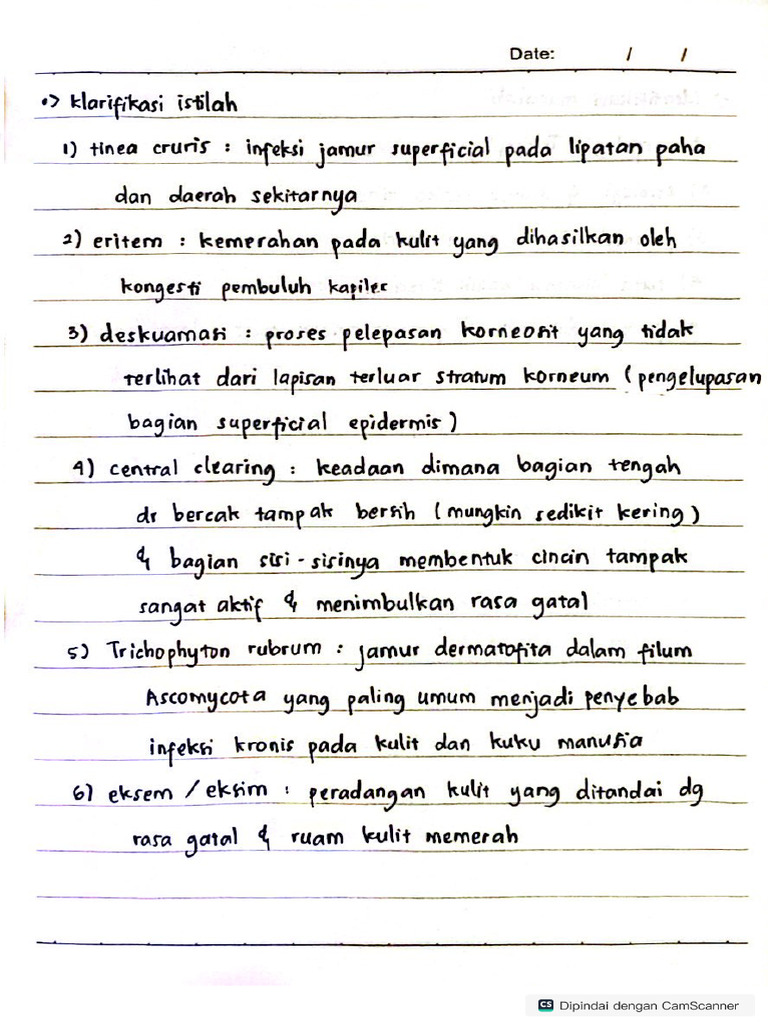 Date: / /
•> klarifikasi istilah
1) tinea cruris : infeksi jamur superficial pada lipatan paha
dan daerah sekitarnya
2) eritem : kemerahan pada kulit yang dihasilkan oleh
kongesti pembuluh kapiler
3) deskuamasi : proses pelepasan korneosit yang tidak
terlihat dari lapisan terluar stratum korneum (pengelupasan
bagian superficial epidermis)
4) central clearing : keadaan dimana bagian tengah
dr bercak tampak bersih (mungkin sedikit kering)
& bagian sisi-sisinya membentuk cincin tampak
sangat aktif & menimbulkan rasa gatal
5) Trichophyton rubrum : jamur dermatofita dalam filum
Ascomycota yang paling umum menjadi penyebab
infeksi kronis pada kulit dan kuku manusia
6) eksem / eksim : peradangan kulit yang ditandai dg
rasa gatal & ruam kulit memerah
CS Dipindai dengan CamScanner